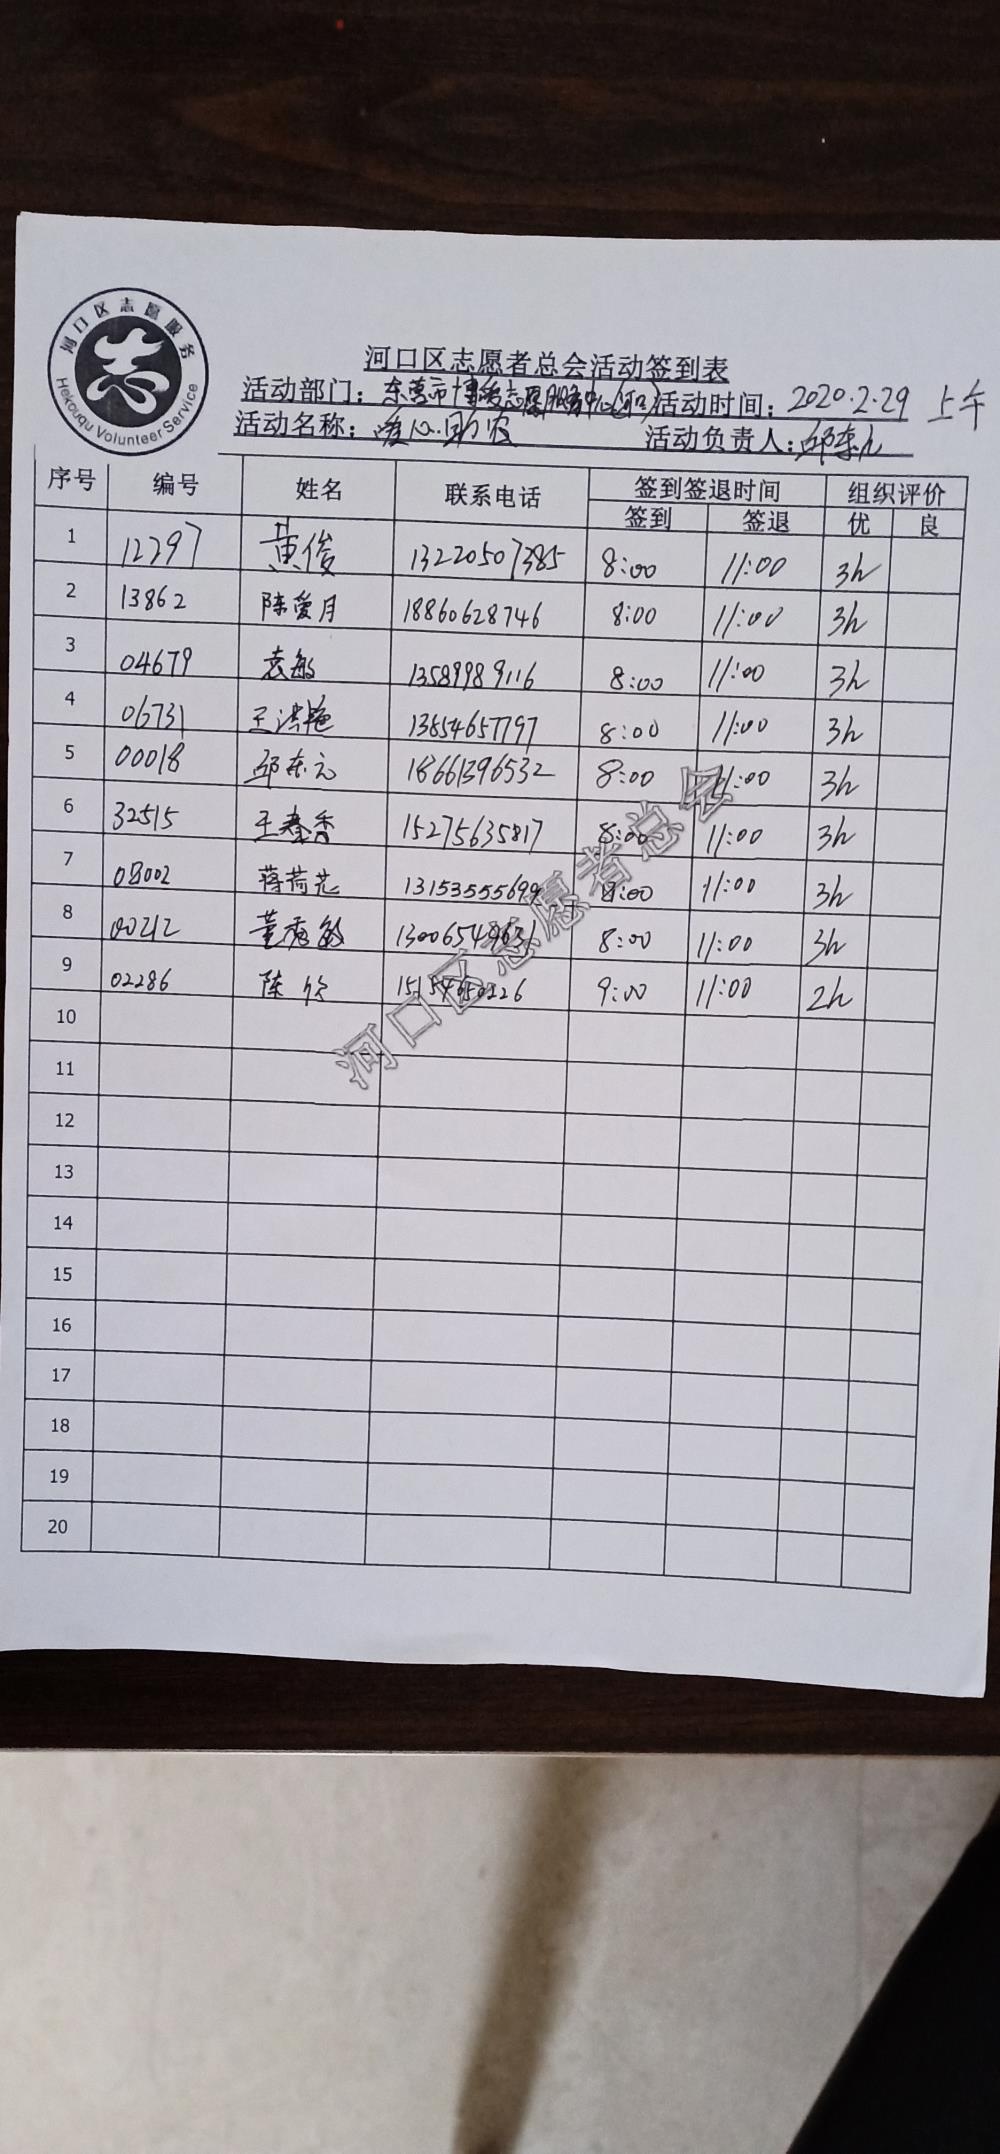 河口区志愿服务
志
Hekouqu Volunteer Service
河口区志愿者总会活动签到表
活动部门：东营市博爱志愿服务中心(河口) 活动时间：2020.2.29 上午
活动名称：爱心助农 活动负责人：邱东元
序号 编号 姓名 联系电话 签到签退时间 组织评价
签到 签退 优 良
1 12297 黄俊 13220507385 8:00 11:00 3h
2 13862 陈爱月 18860628746 8:00 11:00 3h
3 04679 袁敏 13589989116 8:00 11:00 3h
4 06731 王洪艳 13854657797 8:00 11:00 3h
5 00018 邱东元 18661396532 8:00 11:00 3h
6 32515 王春香 15275635817 8:00 11:00 3h
7 08002 蒋荷花 8:00 11:00 3h
8 00212 董秀敏 8:00 11:00 3h
9 02286 陈欣 9:00 11:00 2h
10
11
12
13
14
15
16
17
18
19
20
河口区志愿者总会